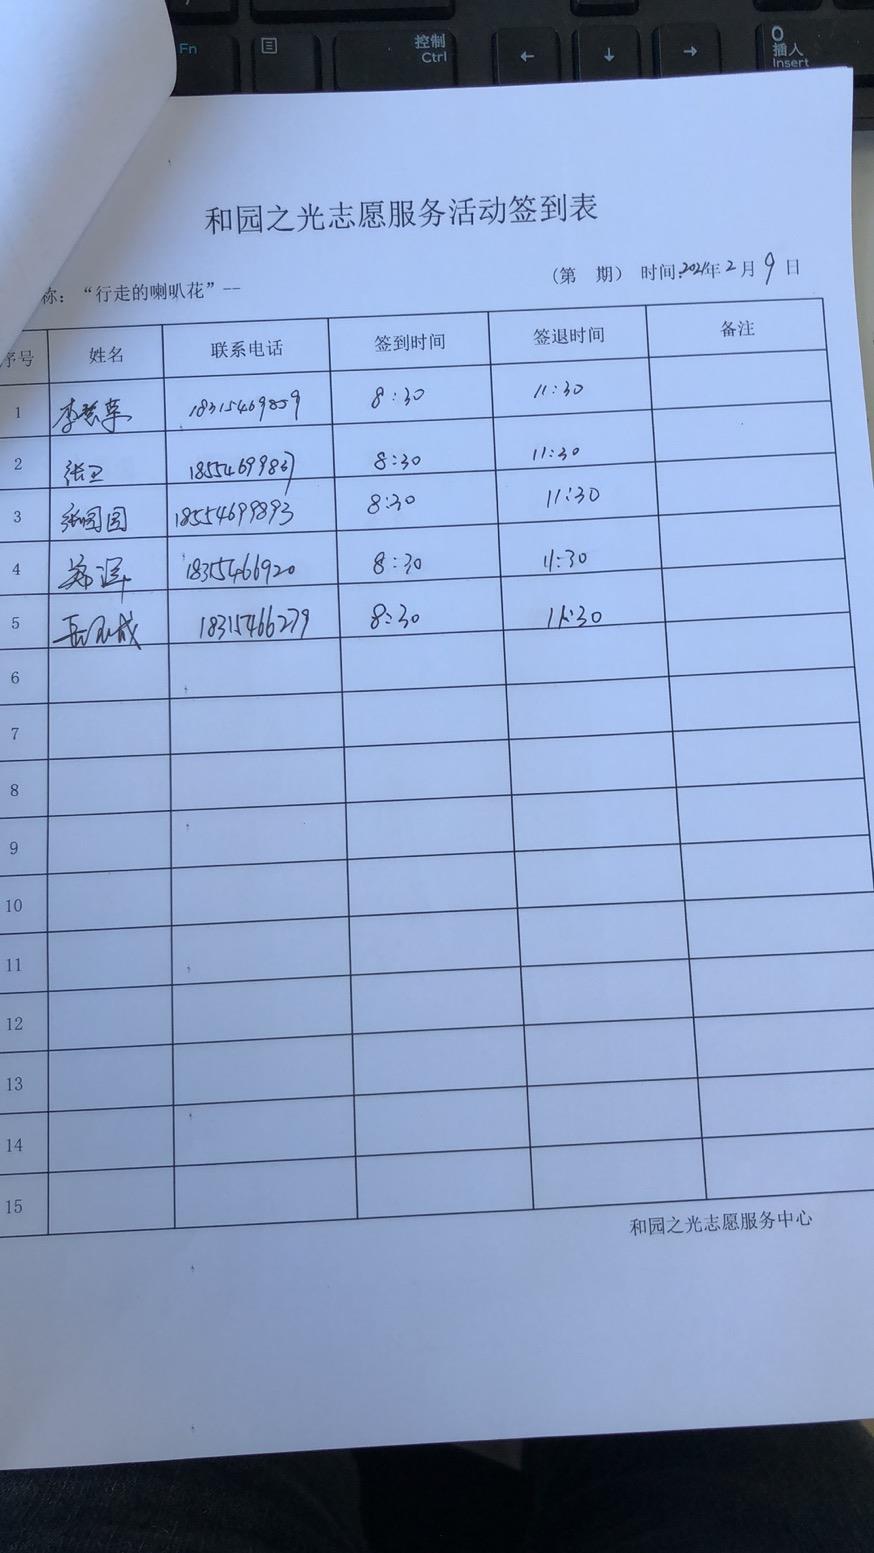 Fn
控制
Ctrl
←
↓
→
0
插入
Insert
和园之光志愿服务活动签到表
称：“行走的喇叭花”--
（第 期） 时间:2021年2月9日
序号 姓名 联系电话 签到时间 签退时间 备注
1 18315469859 8:30 11:30
2 张卫 18554699867 8:30 11:30
3 张园园 18554699893 8:30 11:30
4 18315466920 8:30 11:30
5 18315466279 8:30 11:30
6
7
8
9
10
11
12
13
14
15
和园之光志愿服务中心